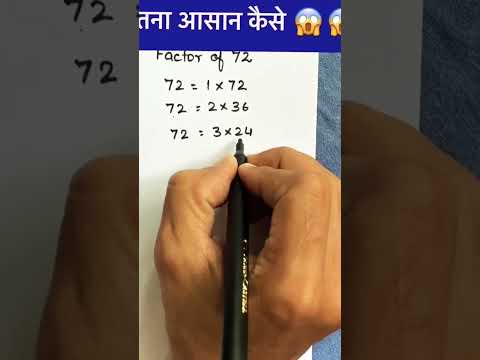 तना आसान कैसे 😱😱
72
Factor of 72
72
72 = 1 × 72
72 = 2 × 36
72 = 3 × 24